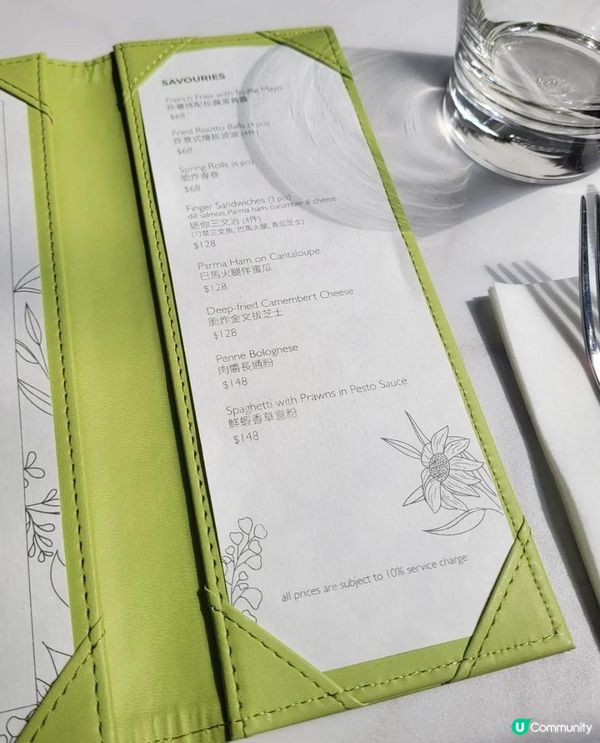 SAVOURIES
French Fries with Truffle Mayo
炸薯條配松露蛋黃醬
$68
Fried Risotto Balls (4 pcs)
炸意式燴飯波波 (4件)
$68
Spring Rolls (6 pcs)
脆炸春卷
$68
Finger Sandwiches (3 pcs)
dill salmon, Parma ham, cucumber & cheese
迷你三文治 (4件)
(刁草三文魚, 巴馬火腿, 青瓜芝士)
$128
Parma Ham on Cantaloupe
巴馬火腿伴蜜瓜
$128
Deep-fried Camembert Cheese
脆炸金文拔芝士
$128
Penne Bolognese
肉醬長通粉
$148
Spaghetti with Prawns in Pesto Sauce
鮮蝦香草意粉
$148
all prices are subject to 10% service charge
U Community